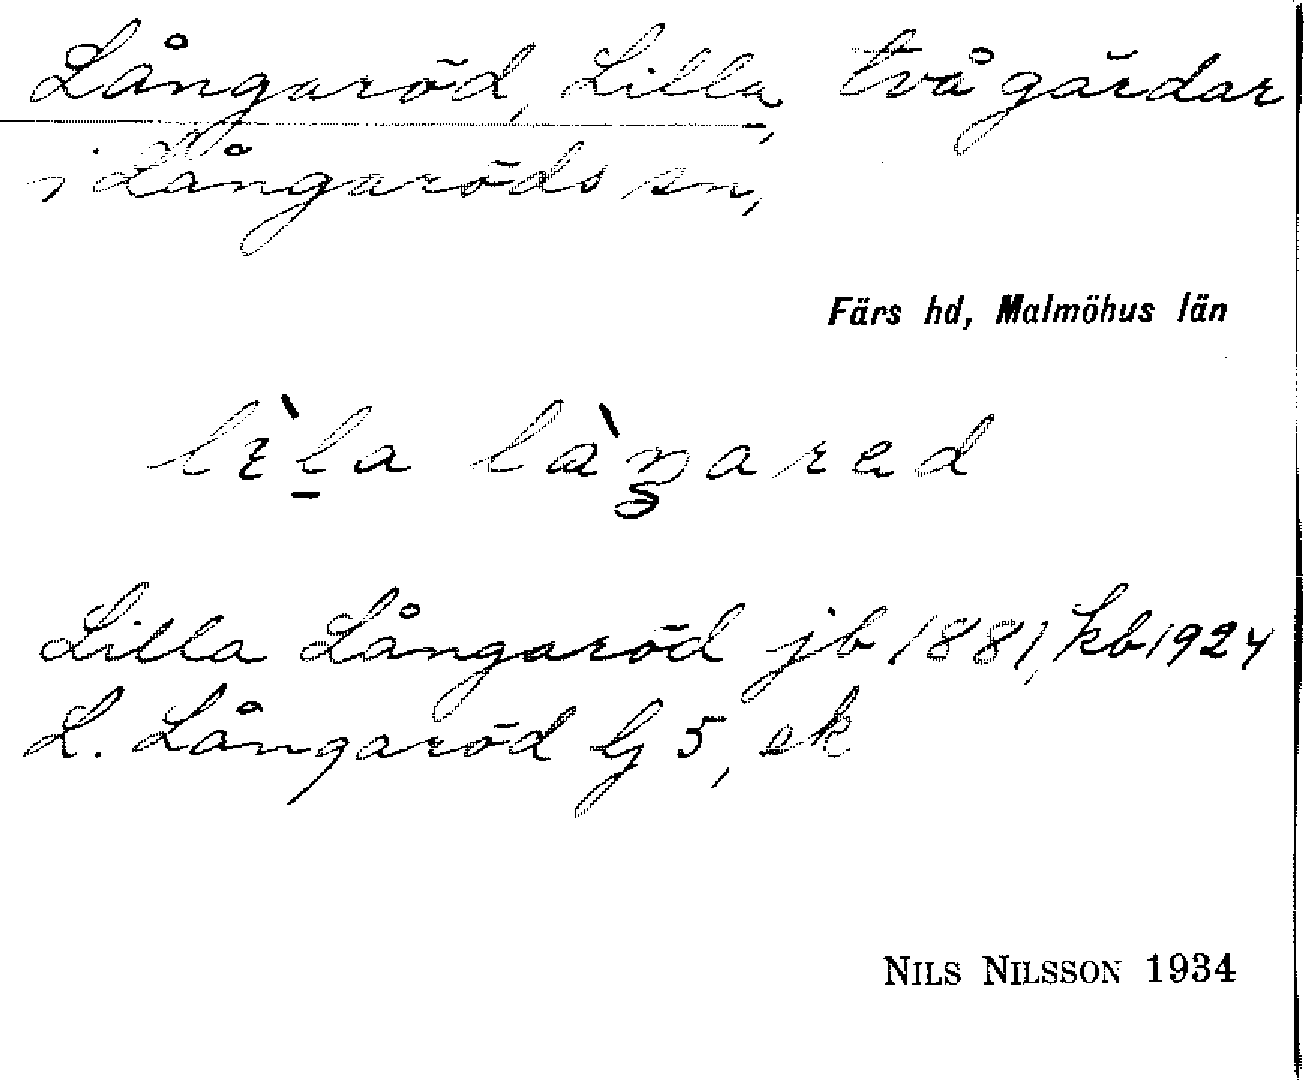 Långaröd, Lilla, två gårdar
i Långaröds sn,
Färs hd, Malmöhus län
Lilla Långaröd jb 1881, kb 1924
L. Långaröd G 5, ek
NILS NILSSON 1934